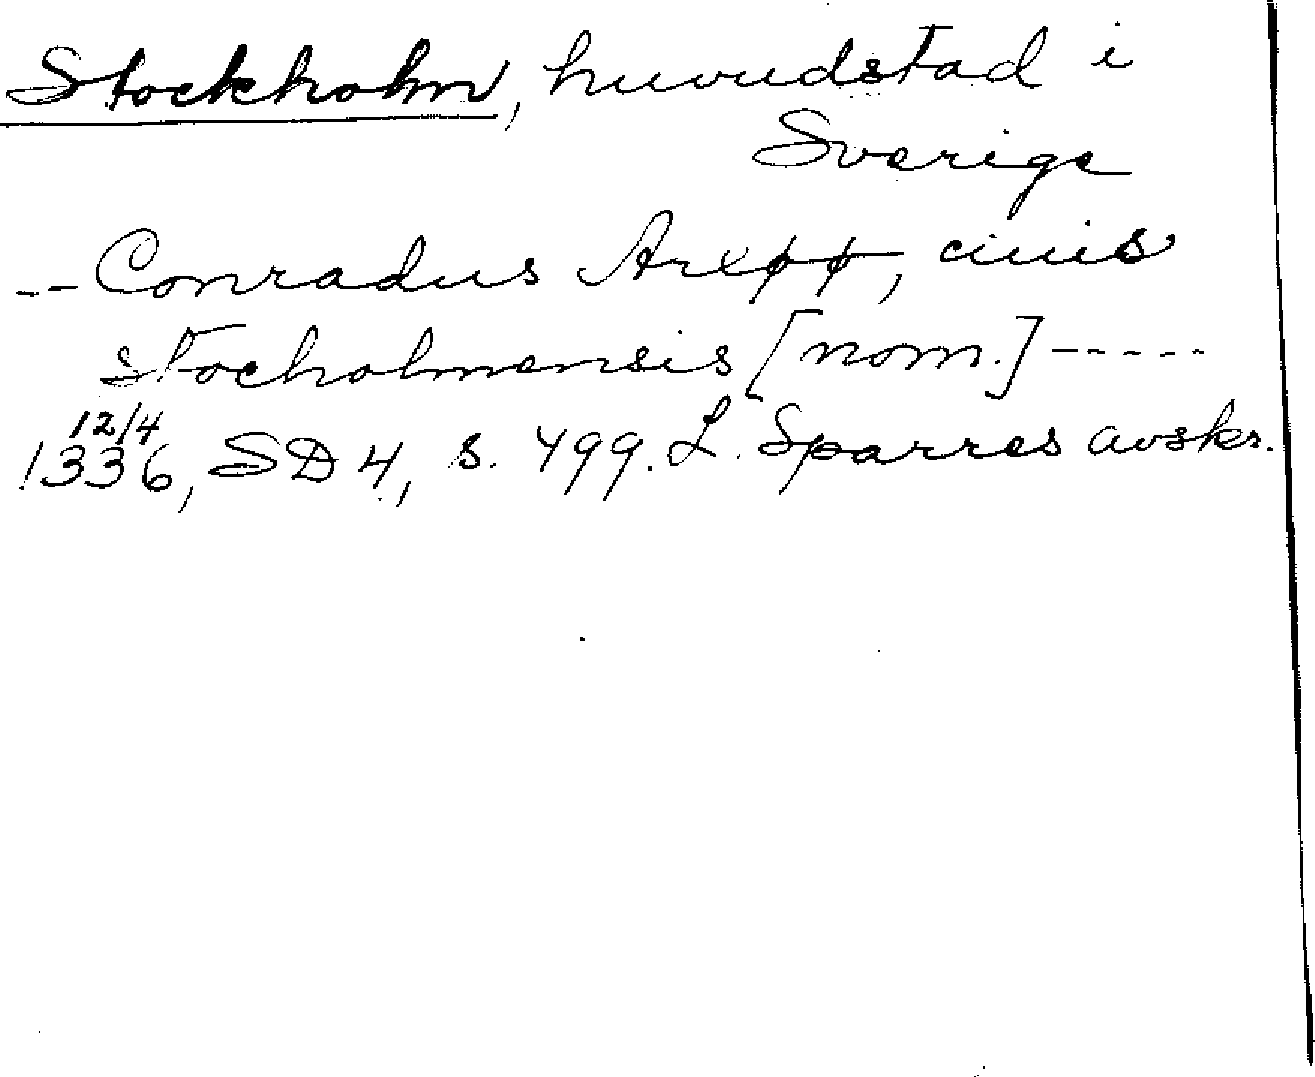 Stockholm, huvudstad i
Sverige
-- Conradus , ciuis
stocholmensis [nom.] -----
12/4
1336, SD 4, s. 499. L. Sparres avskr.